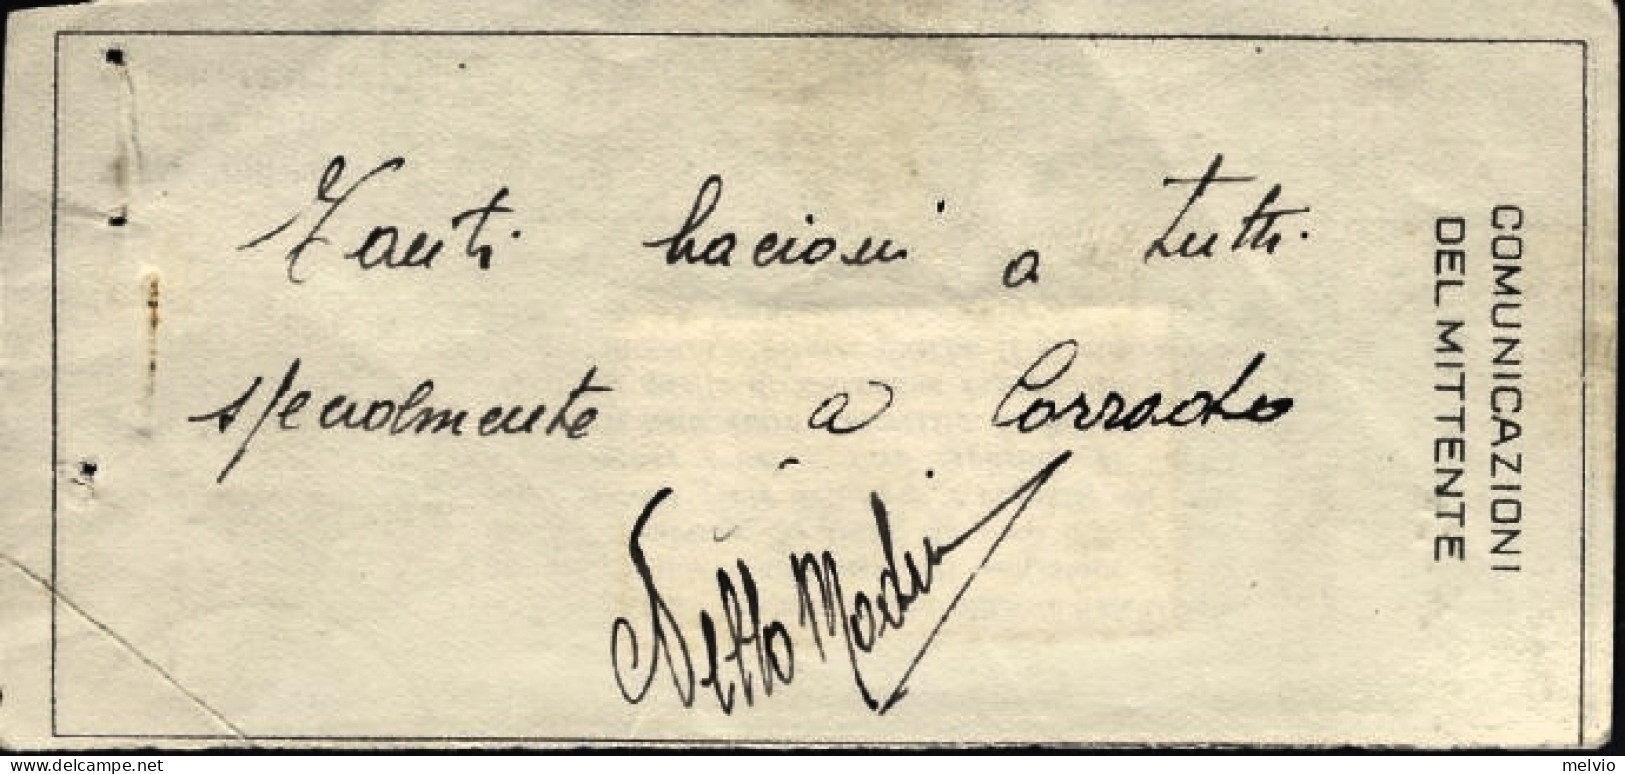 Tanti bacioni a tutti.
specialmente a Corrado
COMUNICAZIONI
DEL MITTENTE
delcampe.net
melvio